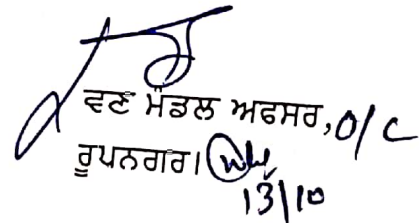 ਵਣ ਮੰਡਲ ਅਫਸਰ, O/C
ਰੂਪਨਗਰ।
13/10